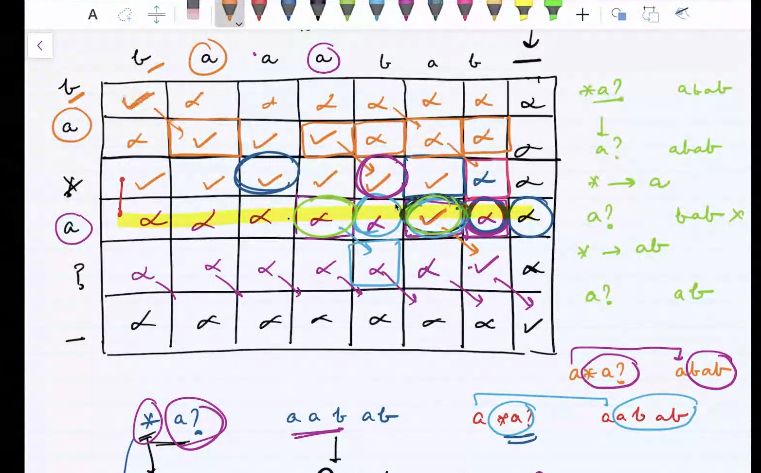 A
b a a a b a b —
b ✓ α α α α α α α
a α ✓ ✓ ✓ α α α α
* ✓ ✓ ✓ ✓ ✓ α α
a α α α α α ✓ α α
? α α α α α α ✓ α
— α α α α α α α ✓
*a? abab
↓
a? abab
* → a
a? bab ×
* → ab
a? ab
a*a? abab
* a? aabab a*a? aabab